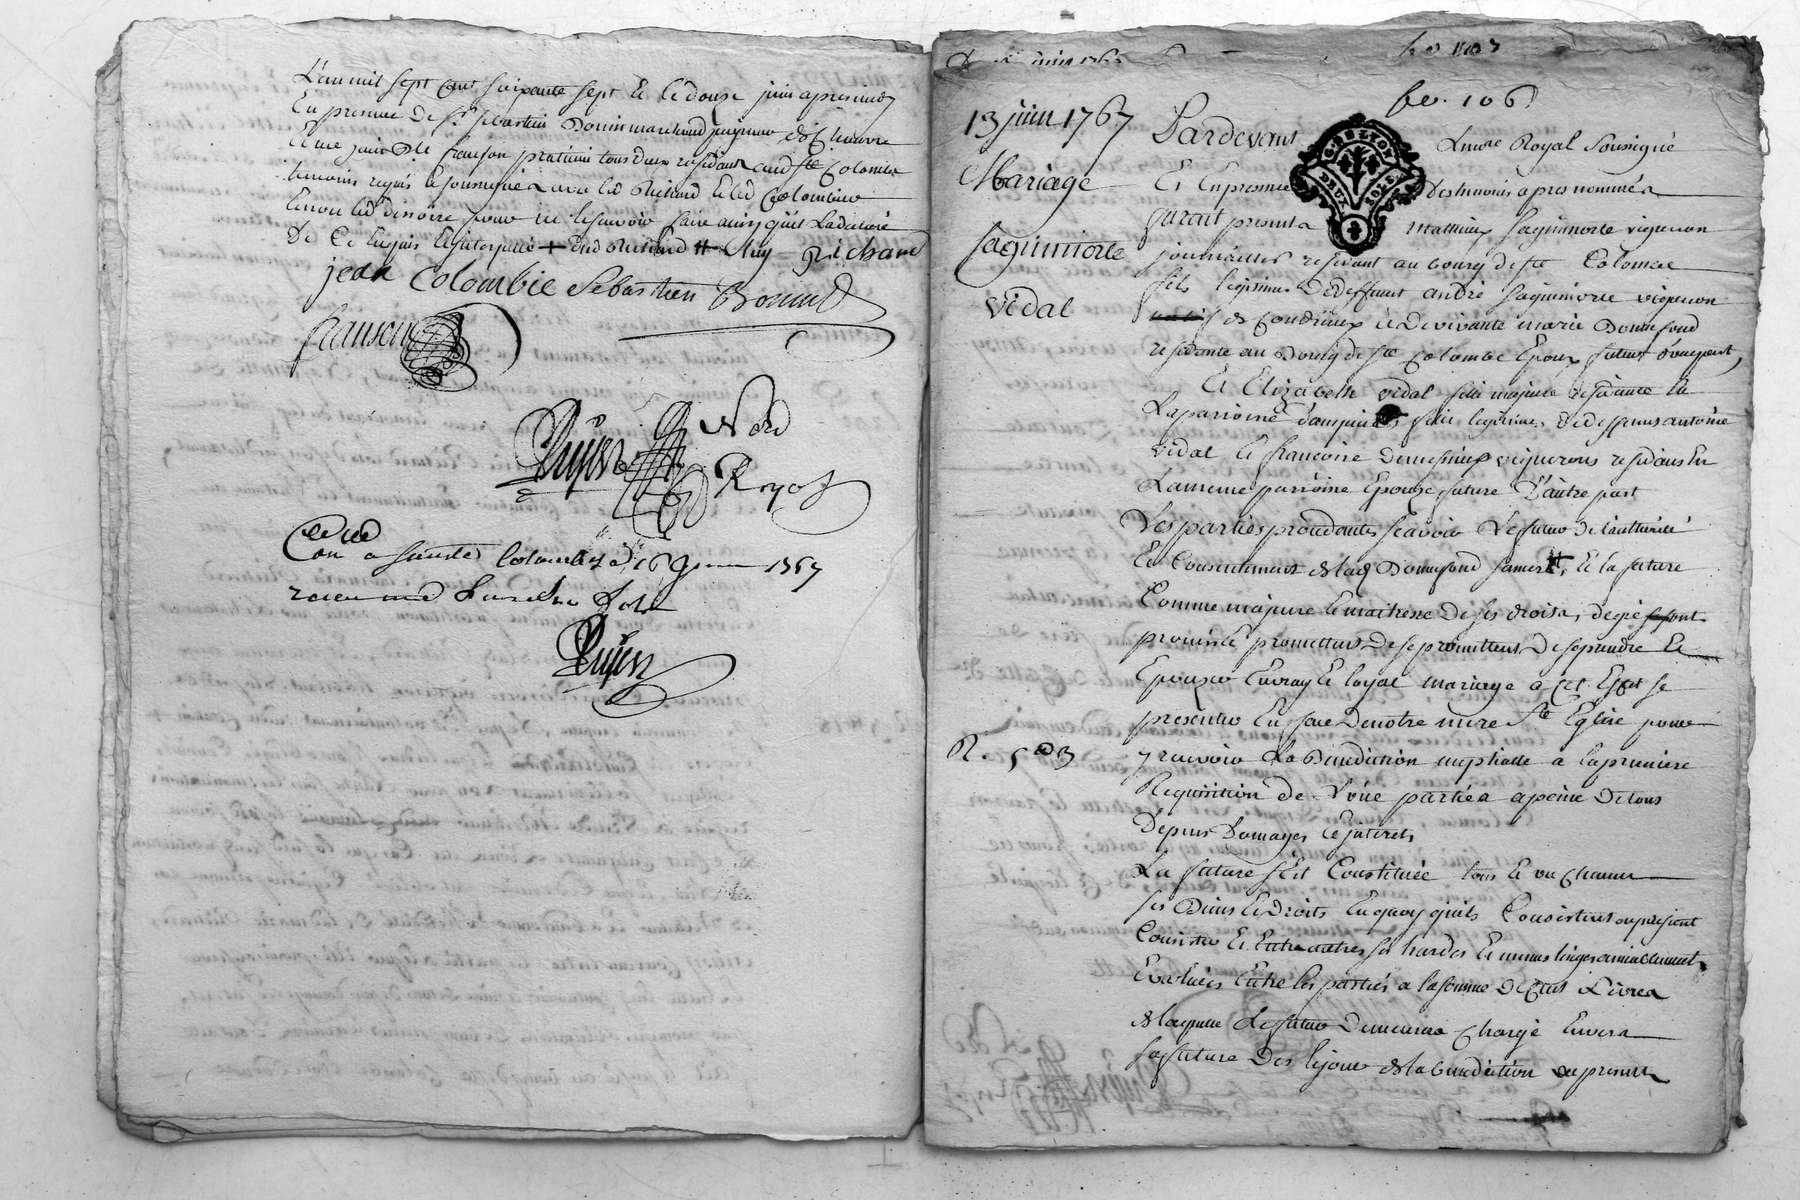 L'an mil sept cent soixante sept et le douze juin apres midy
En presence de sr sebastien Bonin marchand
tous deux residant aud ste Colombe
temoins requis et soussignés avec led Richard et led Colombier
de ce enquis et interpellé + dud Richard # Richard
jean Colombie Sebastien Bonin
franson
Puÿsson Nore
Royal
Con a sainte Colombe le 16 juin 1767
Puÿsson
fo. 106
13 juin 1767
Mariage
saquimorte
vidal
R. 5 3
Pardevant Lnore Royal Soussigné
Et En presence des temoins apres nommés
furent presents mathieu saquimorte vigneron
journallier residant au bourg de ste Colombe
fils legitime de deffunt andré saquimorte vigneron
de Condrieux et de vivante marie Bonnefond
residante au Bourg de ste Colombe Epoux futur d'une part,
Et Elizabeth vidal fille majeure residante en
La parroisse d'ampuis fille legitime de deffunts antoine
vidal et françoise vignerons residants En
La meme parroisse Epouse future d'autre part
Les parties procedantes scavoir Le futur de l'authorité
Et Consentement de lad Bonnefond sa mere #, Et la future
Comme majeure et maitresse de ses droits, de gré se sont
promis et promettent de se prendre Et
Epouser En vray Et loyal mariage a Cet Effet se
presenter En face de notre mere Ste Eglise pour
y recevoir La Benediction nuptialle a la premiere
Requisition de L'une parties a peine de tous
Depens Domages et interets
La future s'est Constituée tous Et un chacun
ses Biens Et droits En quoy quils Consistent ou puissent
Consister Et Entre autres ses hardes Et menus linges amiablement
Evalués Entre les parties a la somme de Cent Livres
de laquelle Le futur demeurera chargé Envers
sa future Des le jour de la benediction du present